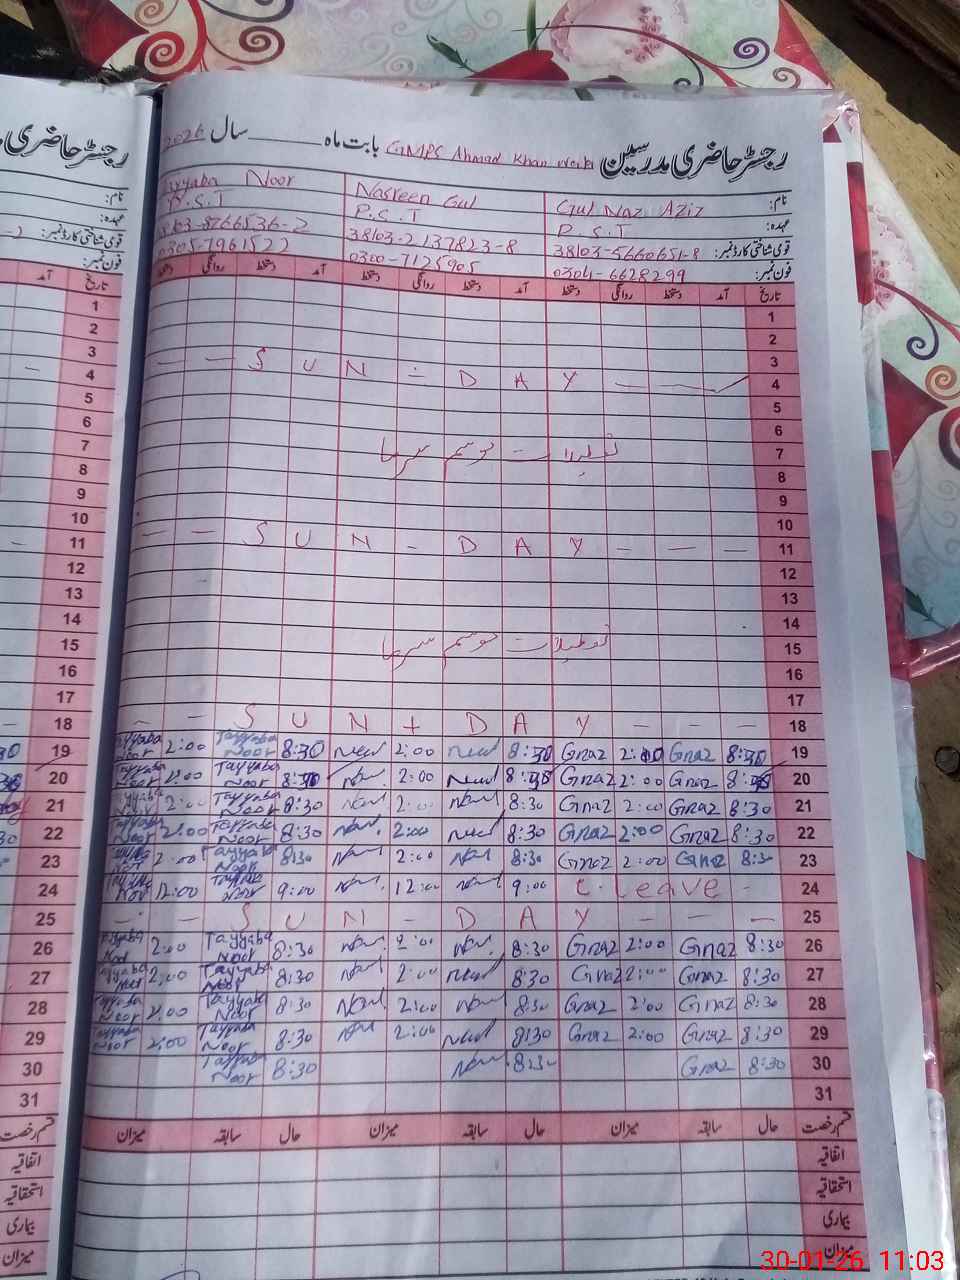 رجسٹر حاضری مدرسین GMPS Ahmad Khan بابت ماہ سال 2026
نام: Gul Naz Aziz Nasreen Gul Tayyaba Noor
عہدہ: P.S.T P.S.T P.S.T
قومی شناختی کارڈ نمبر: 38103-5660651-8 38103-2137823-8 38103-8766536-2
فون نمبر: 0304-6628299 0300-7125905 0305-7961522
تاریخ آمد دستخط روانگی دستخط آمد دستخط روانگی دستخط آمد دستخط روانگی دستخط
1
2
3
4 - - SUN - DAY - -
5
6
7 تعطیلات موسم سرما
8
9
10
11 - - SUN - DAY - - -
12
13
14
15 تعطیلات موسم سرما
16
17
18 - - SUN + DAY - - -
Tayyaba Noor 2:00 Tayyaba Noor 8:30 2:00 8:30 Gnaz 2:00 Gnaz 8:30 19
Tayyaba Noor 2:00 Tayyaba Noor 8:30 2:00 8:30 Gnaz 2:00 Gnaz 8:30 20
Tayyaba Noor 2:00 Tayyaba Noor 8:30 2:00 8:30 Gnaz 2:00 Gnaz 8:30 21
Tayyaba Noor 2:00 Tayyaba Noor 8:30 2:00 8:30 Gnaz 2:00 Gnaz 8:30 22
Tayyaba Noor 2:00 Tayyaba Noor 8:30 2:00 8:30 Gnaz 2:00 Gnaz 8:30 23
Tayyaba Noor 12:00 Tayyaba Noor 9:00 12:00 9:00 C. Leave - 24
- - SUN - DAY - - - 25
Tayyaba Noor 2:00 Tayyaba Noor 8:30 2:00 8:30 Gnaz 2:00 Gnaz 8:30 26
Tayyaba Noor 2:00 Tayyaba Noor 8:30 2:00 8:30 Gnaz 2:00 Gnaz 8:30 27
Tayyaba Noor 2:00 Tayyaba Noor 8:30 2:00 8:30 Gnaz 2:00 Gnaz 8:30 28
Tayyaba Noor 2:00 Tayyaba Noor 8:30 2:00 8:30 Gnaz 2:00 Gnaz 8:30 29
Tayyaba Noor 8:30 8:30 Gnaz 8:30 30
31
قسم رخصت حال سابقہ میزان حال سابقہ میزان حال سابقہ میزان
اتفاقیہ
استحقاقیہ
بیماری
میزان
رجسٹر حاضری
نام:
عہدہ:
قومی شناختی کارڈ نمبر:
فون نمبر:
تاریخ آمد
1
2
3
4
5
6
7
8
9
10
11
12
13
14
15
16
17
18
19
20
21
22
23
24
25
26
27
28
29
30
31
قسم رخصت حال
اتفاقیہ
استحقاقیہ
بیماری
میزان
30-01-26 11:03